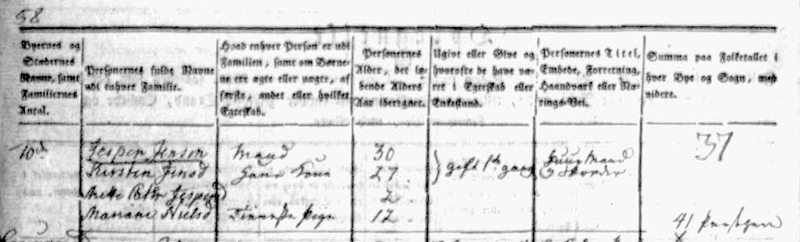 58
Byernes og Stædernes Navne, samt Familiernes Antal.
Personernes fulde Navne udi enhver Familie.
Hvad enhver Person er udi Familien, samt om Børnene ere ægte eller uægte, af første, andet eller hvilket Egteskab.
Personernes Alder, det løbende Alders Aar iberegnet.
Ugivt eller Givt og hvorofte de have været i Egteskab eller Enkestand.
Personernes Titel, Embede, Forretning, Haandværk eller Nærings-Vei.
Summa paa Folketallet i hver Bye og Sogn, med videre.
37
10 Jesper Jenson Mand 30 gift 1te gang Huusmand
Kirsten Jensd Hans Kone 27
Mette Jespersd 2
Mariane Nielsd Tieneste Pige 12
41